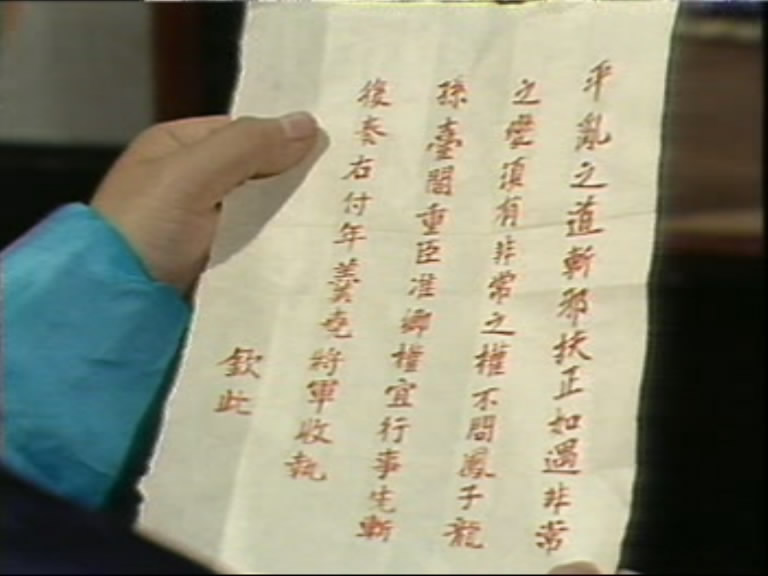 平亂之道斬邪扶正如遇非常
之變須有非常之權不問鳳子龍
孫臺閣重臣准卿權宜行事先斬
後奏右付年羹堯將軍收執
欽此